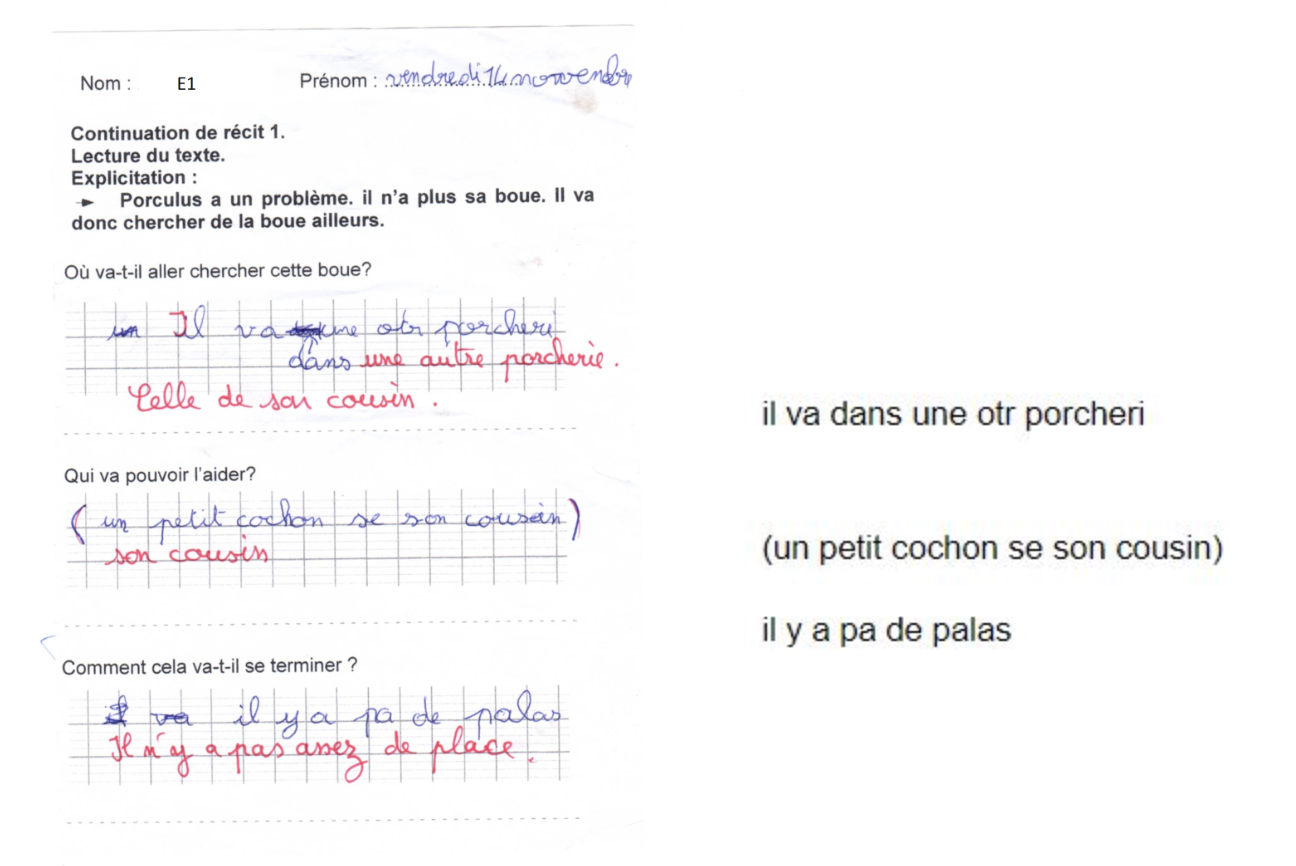 Nom : E1 Prénom : vendredi 14 novembre
Continuation de récit 1.
Lecture du texte.
Explicitation :
➛ Porculus a un problème. il n'a plus sa boue. Il va
donc chercher de la boue ailleurs.
Où va-t-il aller chercher cette boue?
un Il va une otr porcheri
dans une autre porcherie.
Celle de son cousin.
Qui va pouvoir l'aider?
(un petit cochon se son cousin)
son cousin
Comment cela va-t-il se terminer ?
il va il y a pa de palas
Il n'y a pas assez de place.
il va dans une otr porcheri
(un petit cochon se son cousin)
il y a pa de palas